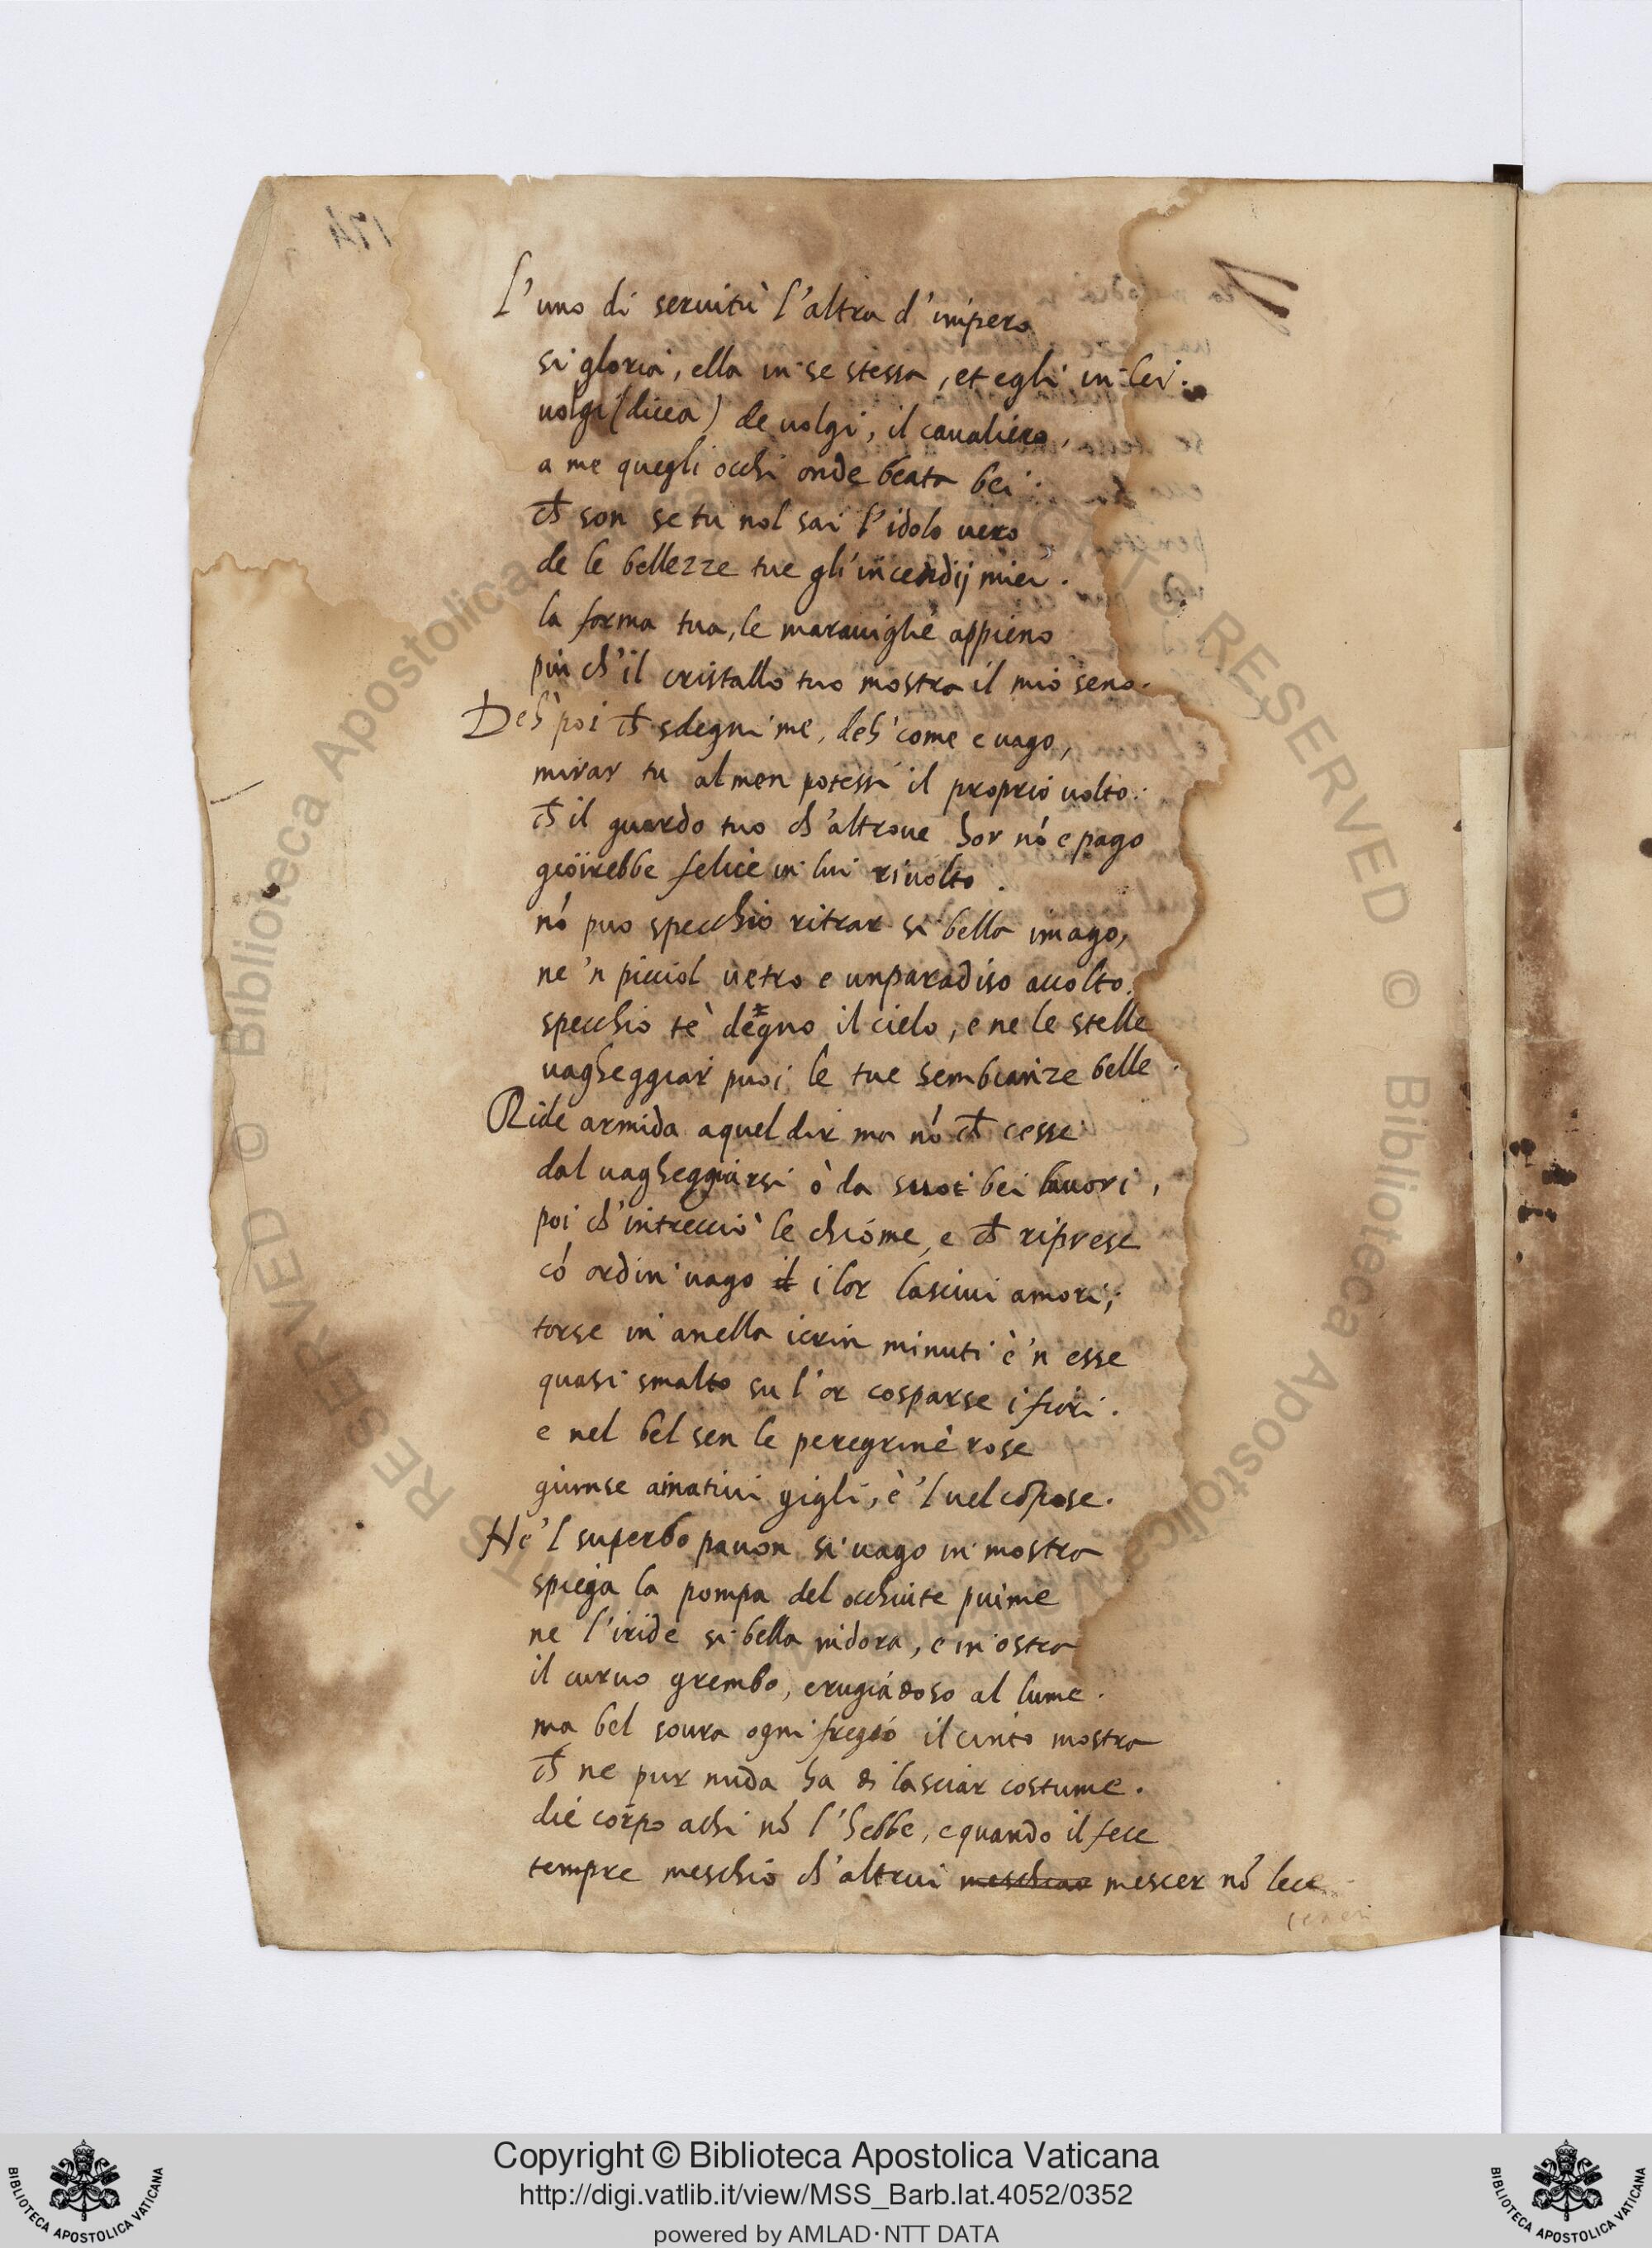 174
L'uno di seruitù l'altra d'impero
si gloria, ella in se stessa, et egli in lei.
uolgi (dicea) de uolgi, il caualiero,
a me quegli occhi onde beata bei.
ch̄ son se tu nol sai l'idolo uero
de le bellezze tue gli incendij miei.
la forma tua, le marauiglie appieno
piu ch'il cristallo tuo mostra il mio seno.
Deh poi ch̄ sdegni me, deh come e uago,
mirar tu almen potessi il proprio uolto.
ch̄ il guardo tuo ch'altroue hor nó e pago
gioirebbe felice in lui riuolto.
nó puo specchio ritrar si bella imago,
ne 'n picciol uetro e un paradiso accolto.
specchio te degno il cielo, e ne le stelle
uagheggiar puoi le tue sembianze belle.
Ride armida a quel dir ma nó ch̄ cesse
dal uagheggiarsi ò da suoi bei lauori,
poi ch'intrecciò le chióme, e ch̄ riprese
có ordin uago il i lor lasciui amori,
torse in anella i crin minuti è 'n esse
quasi smalto su l'or cosparse i fiori.
e nel bel sen le peregrine rose
giunse a i natiui gigli, è 'l uel cōpose.
Ne 'l superbo pauon si uago in mostra
spiega la pompa del occhiute piume
ne l'iride si bella indora, e in ostra
il curuo grembo, e rugiádoso al lume.
ma bel soura ogni fregio il cinto mostra
ch̄ ne pur nuda ha di lasciar costume.
diè corpo a chi nó l'hebbe, e quando il fece
tempre meschiò ch'altrui meschiar mescer nó lece
Copyright © Biblioteca Apostolica Vaticana
http://digi.vatlib.it/view/MSS_Barb.lat.4052/0352
powered by AMLAD・NTT DATA
BIBLIOTECA APOSTOLICA VATICANA
BIBLIOTECA APOSTOLICA VATICANA